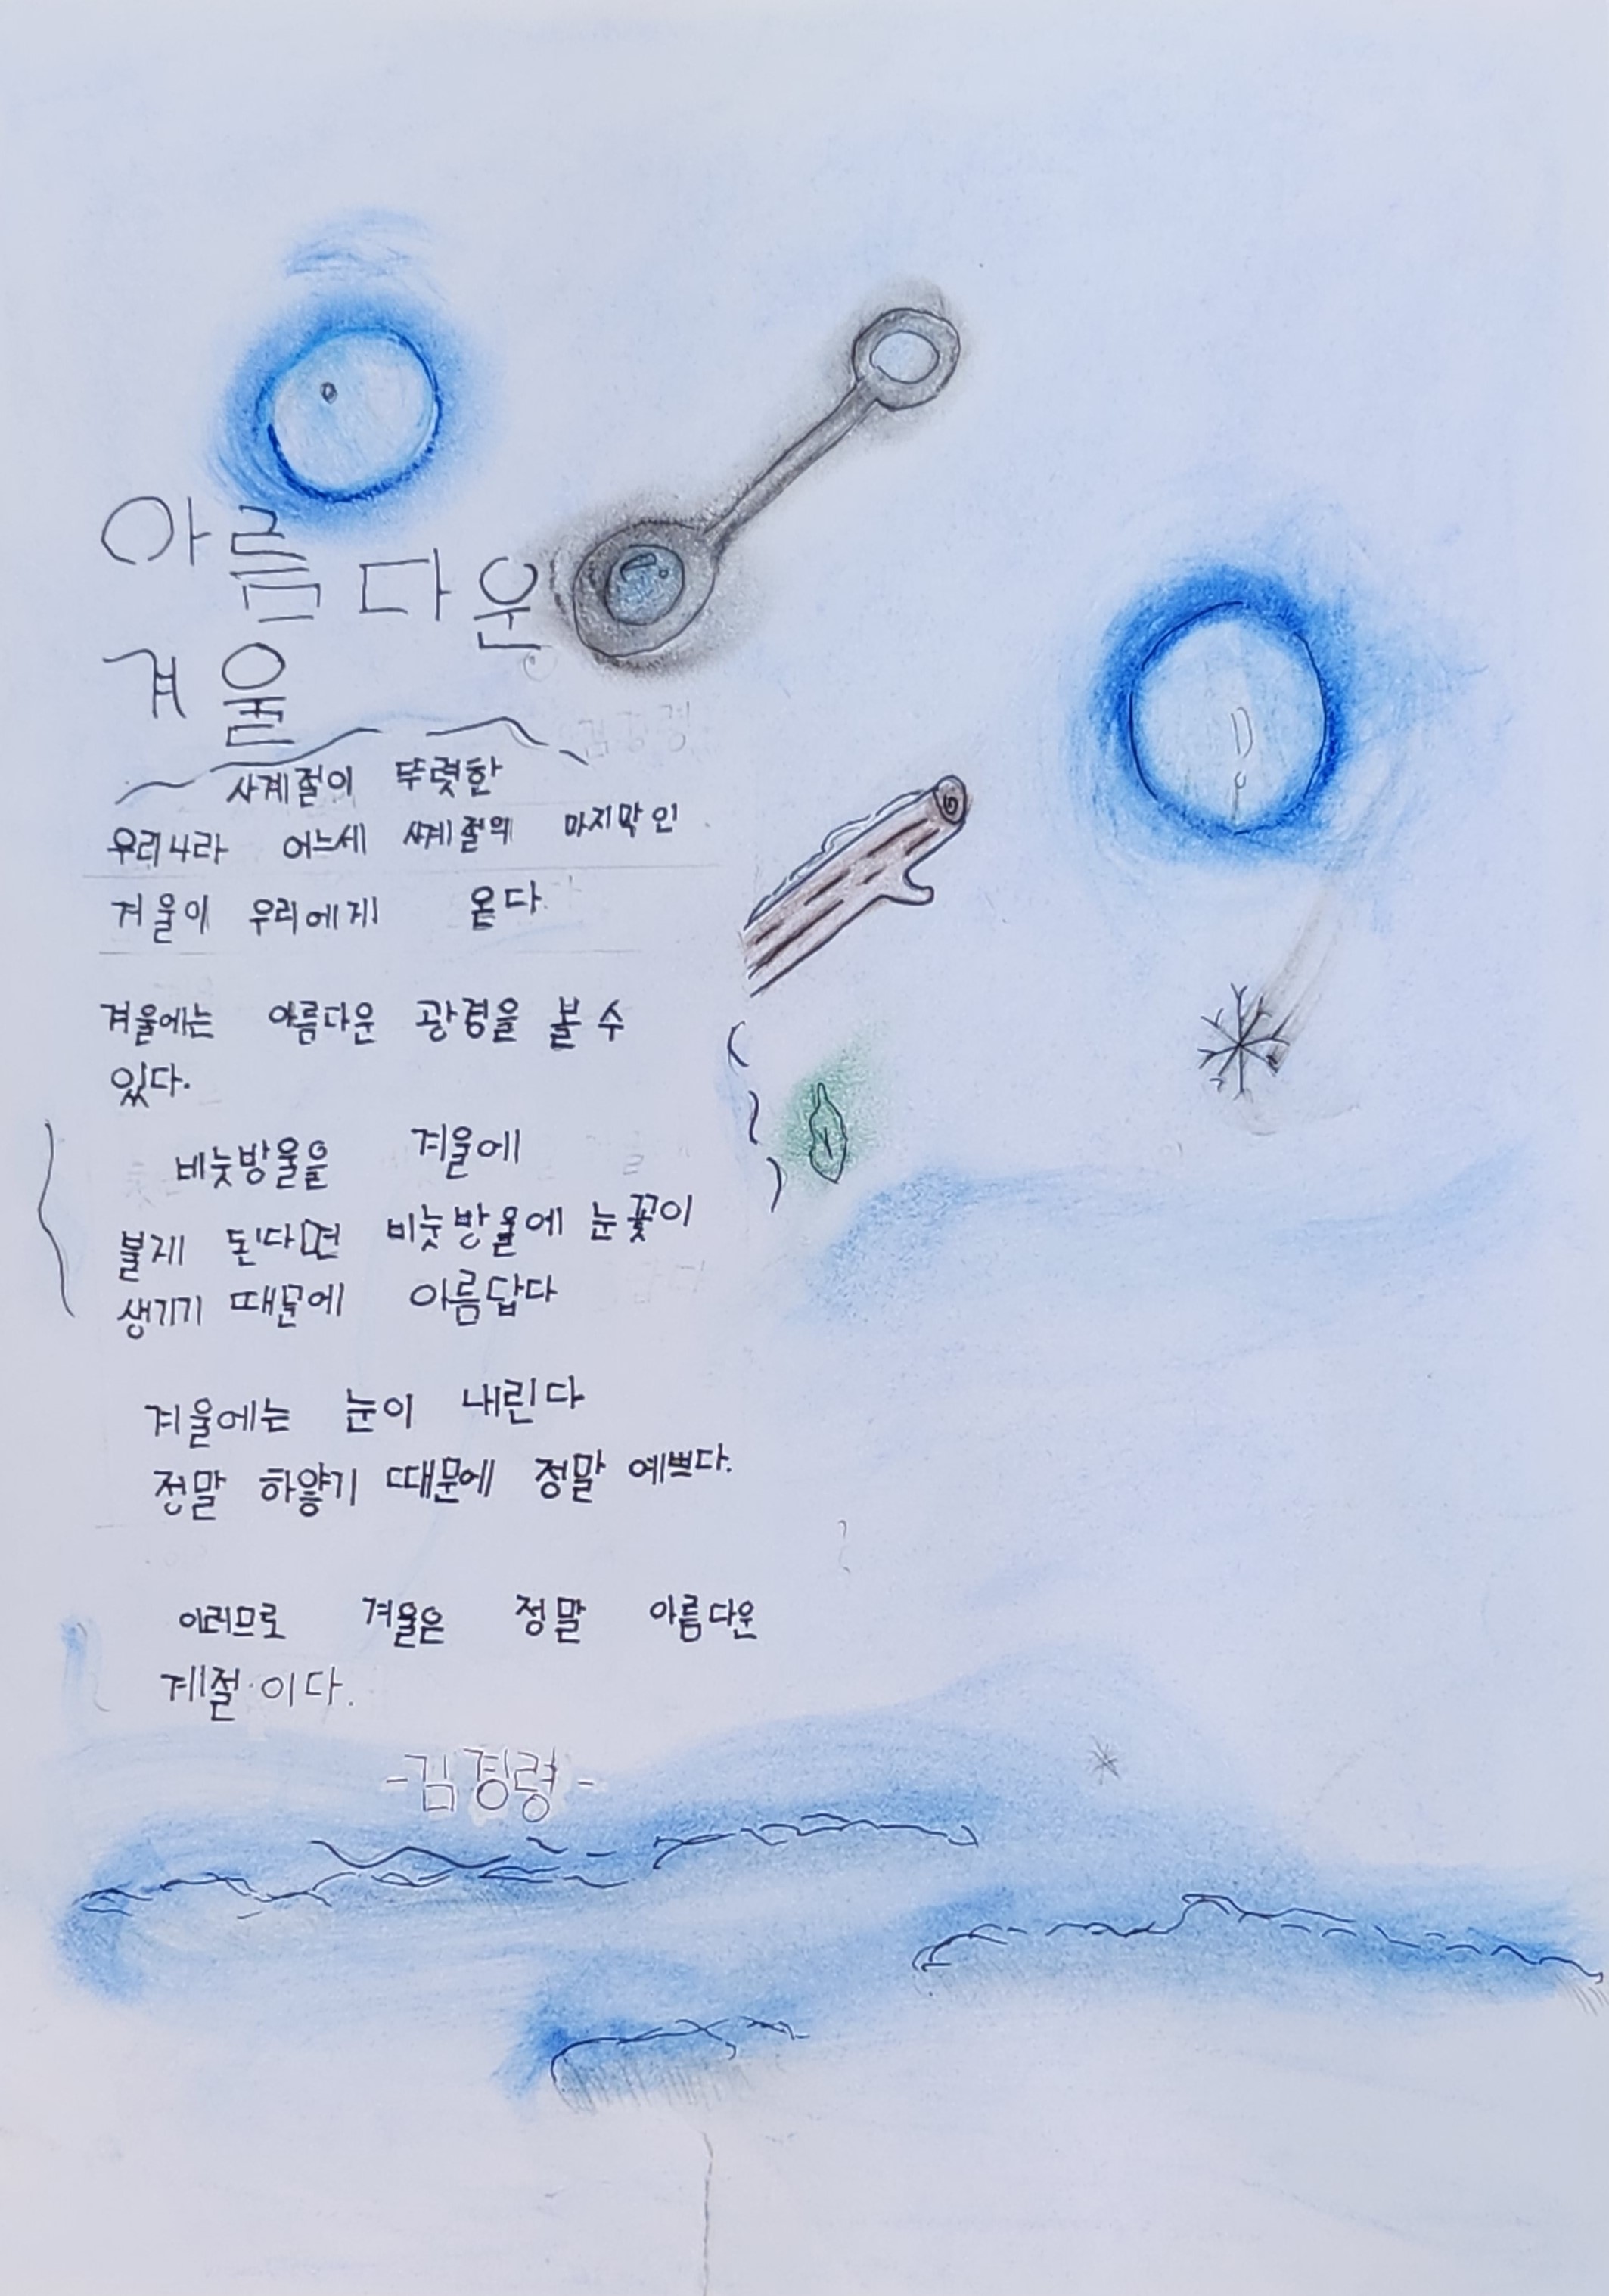 아름다운
겨울
사계절이 뚜렷한
우리나라 어느세 사계절의 마지막인
겨울이 우리에게 온다
겨울에는 아름다운 광경을 볼 수
있다.
비눗방울을 겨울에
불게 된다면 비눗방울에 눈꽃이
생기기 때문에 아름답다
겨울에는 눈이 내린다
정말 하얗기 때문에 정말 예쁘다.
이러므로 겨울은 정말 아름다운
계절이다.
-김경령-